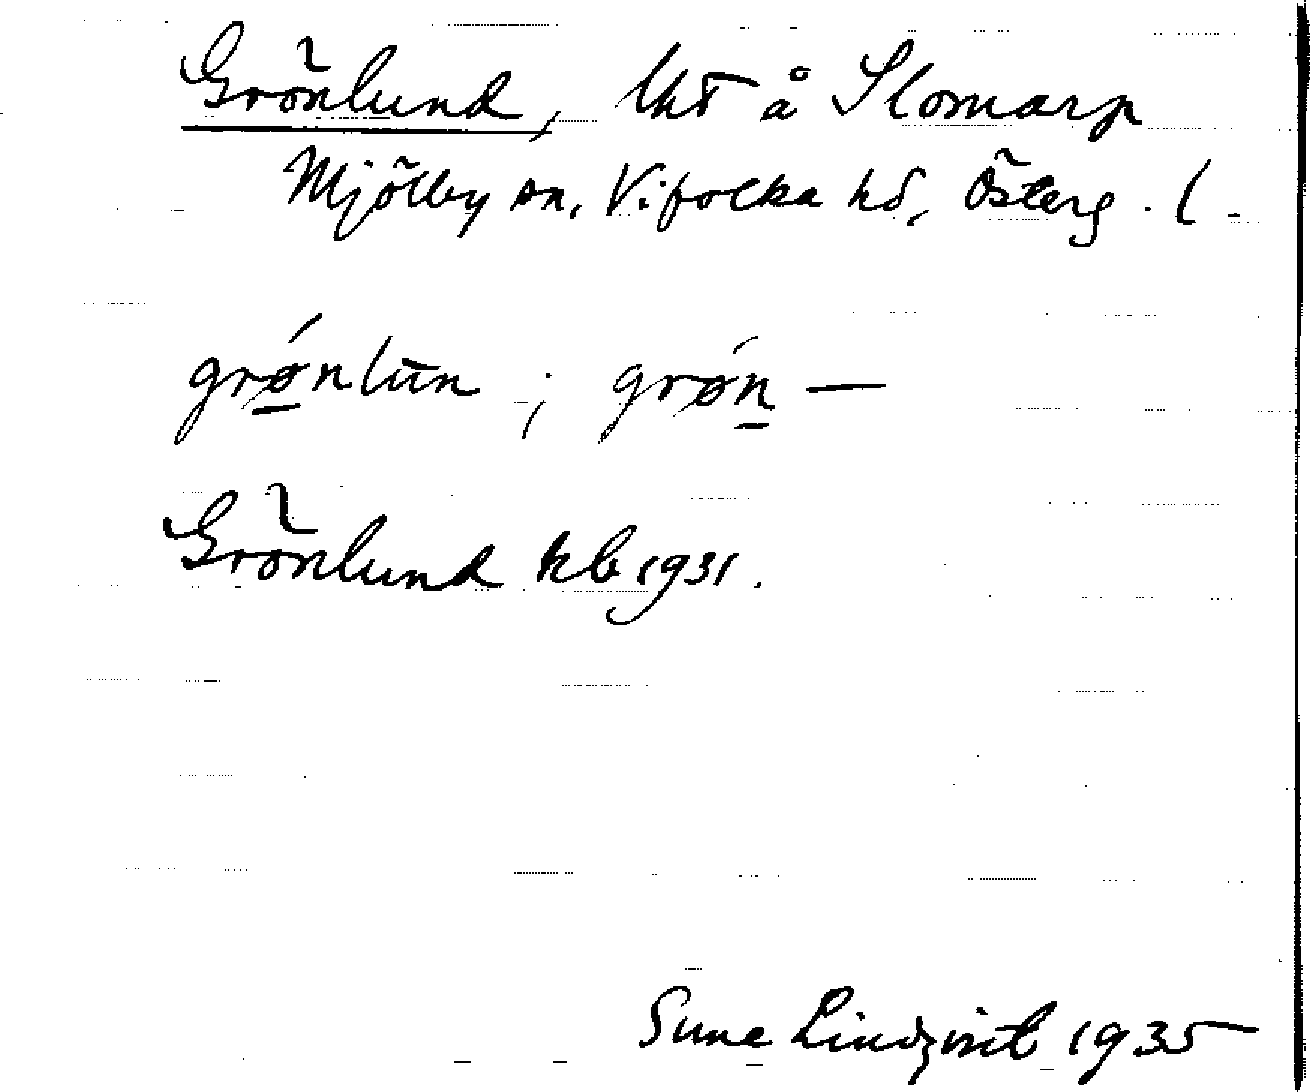 Grönlund, lht å Slomarp
Mjölby sn, Vifolka hd, Österg. l.
grǿnlūn ; grǿn —
Grönlund kb 1931.
Sune Lindqvist 1935